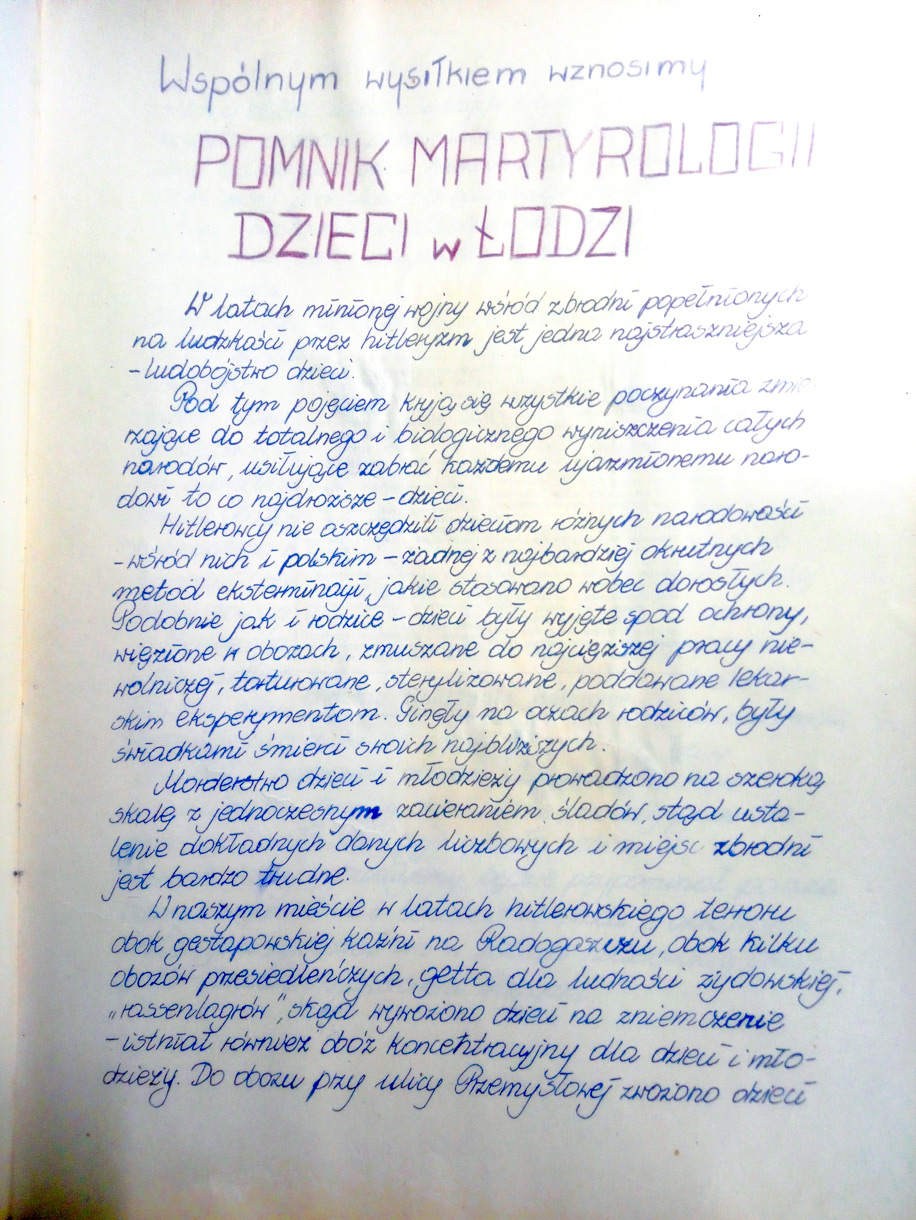 Wspólnym wysiłkiem wznosimy
POMNIK MARTYROLOGII
DZIECI w ŁODZI
W latach minionej wojny wśród zbrodni popełnionych
na ludzkości przez hitleryzm jest jedna najstraszniejsza
- ludobójstwo dzieci.
Pod tym pojęciem kryją się wszystkie poczynania zmie-
rzające do totalnego i biologicznego wyniszczenia całych
narodów, usiłujące zabrać każdemu ujarzmionemu naro-
dowi to co najdroższe - dzieci.
Hitlerowcy nie oszczędzili dzieciom różnych narodowości
- wśród nich i polskim - żadnej z najbardziej okrutnych
metod eksterminacji, jakie stosowano wobec dorosłych.
Podobnie jak i rodzice - dzieci były wyjęte spod ochrony,
więzione w obozach, zmuszane do najcięższej pracy nie-
wolniczej, torturowane, sterylizowane, poddawane lekar-
skim eksperymentom. Ginęły na oczach rodziców, były
świadkami śmierci swoich najbliższych.
Morderstwo dzieci i młodzieży prowadzono na szeroką
skalę z jednoczesnym zacieraniem śladów, stąd usta-
lenie dokładnych danych liczbowych i miejsc zbrodni
jest bardzo trudne.
W naszym mieście w latach hitlerowskiego terroru
obok gestapowskiej kaźni na Radogoszczu, obok kilku
obozów przesiedleńczych, getta dla ludności żydowskiej,
"rassenlagrów", skąd wywożono dzieci na zniemczenie
- istniał również obóz koncentracyjny dla dzieci i mło-
dzieży. Do obozu przy ulicy Przemysłowej zwożono dzieci